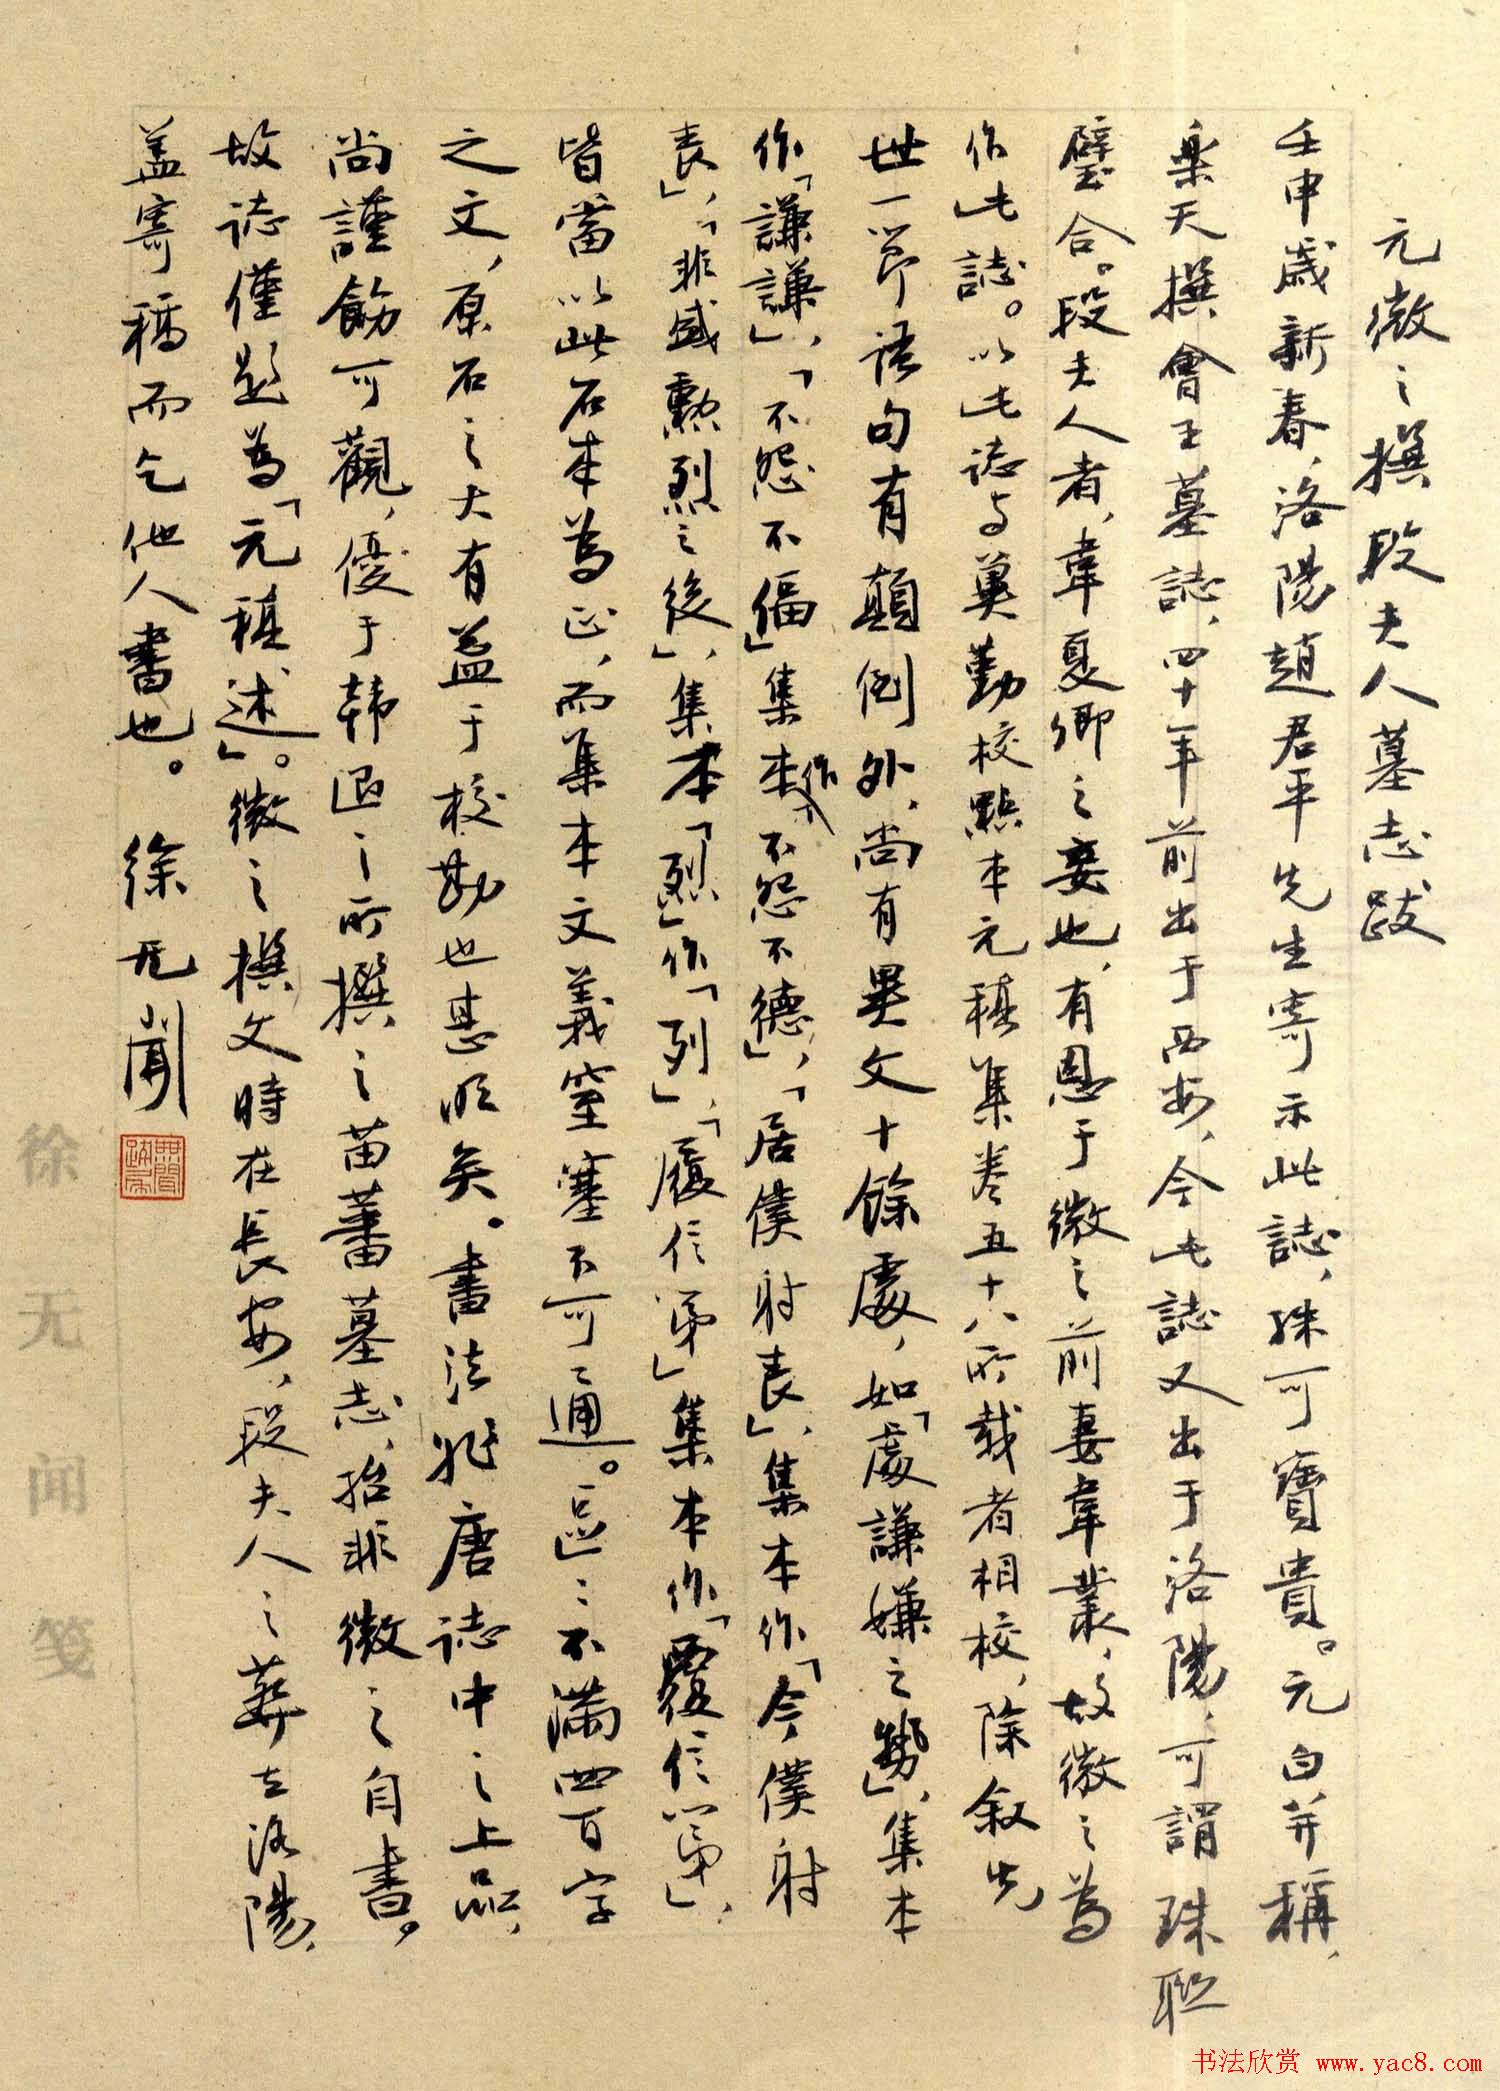 元微之撰段夫人墓志跋
壬申歲新春，洛陽趙君平先生寄示此誌，殊可寶貴。元白并稱，
樂天撰會王墓誌，四十年前出于西安，今此誌又出于洛陽，可謂珠联
璧合。段夫人者，韋夏卿之妾也，有恩于微之前妻韋叢，故微之為
作此誌。以此誌与冀勤校點本元稹集卷五十八所载者相校，除叙先
世一節语句有顛倒外，尚有異文十餘處，如「處謙嫌之勢」，集本
作「謙謙」，「不怨不偪」集本作「不怨不德」，「居僕射丧」，集本作「今僕射
丧」，「非盛勲烈之後」，集本「烈」作「列」，「履信第」集本作「覆信第」，
皆當以此石本為正，而集本文義窒塞不可通。区区不满四百字
之文，原石之大有益于校勘也甚明矣。書法非唐誌中之上品，
尚謹飭可觀，優于韩退之所撰之苗蕃墓志，殆非微之自書。
故誌僅題為「元稹述」。微之撰文時在長安，段夫人之葬在洛陽，
盖寄稿而乞他人書也。 徐无聞
無聞
徐无闻笺
书法欣赏 www.yac8.com